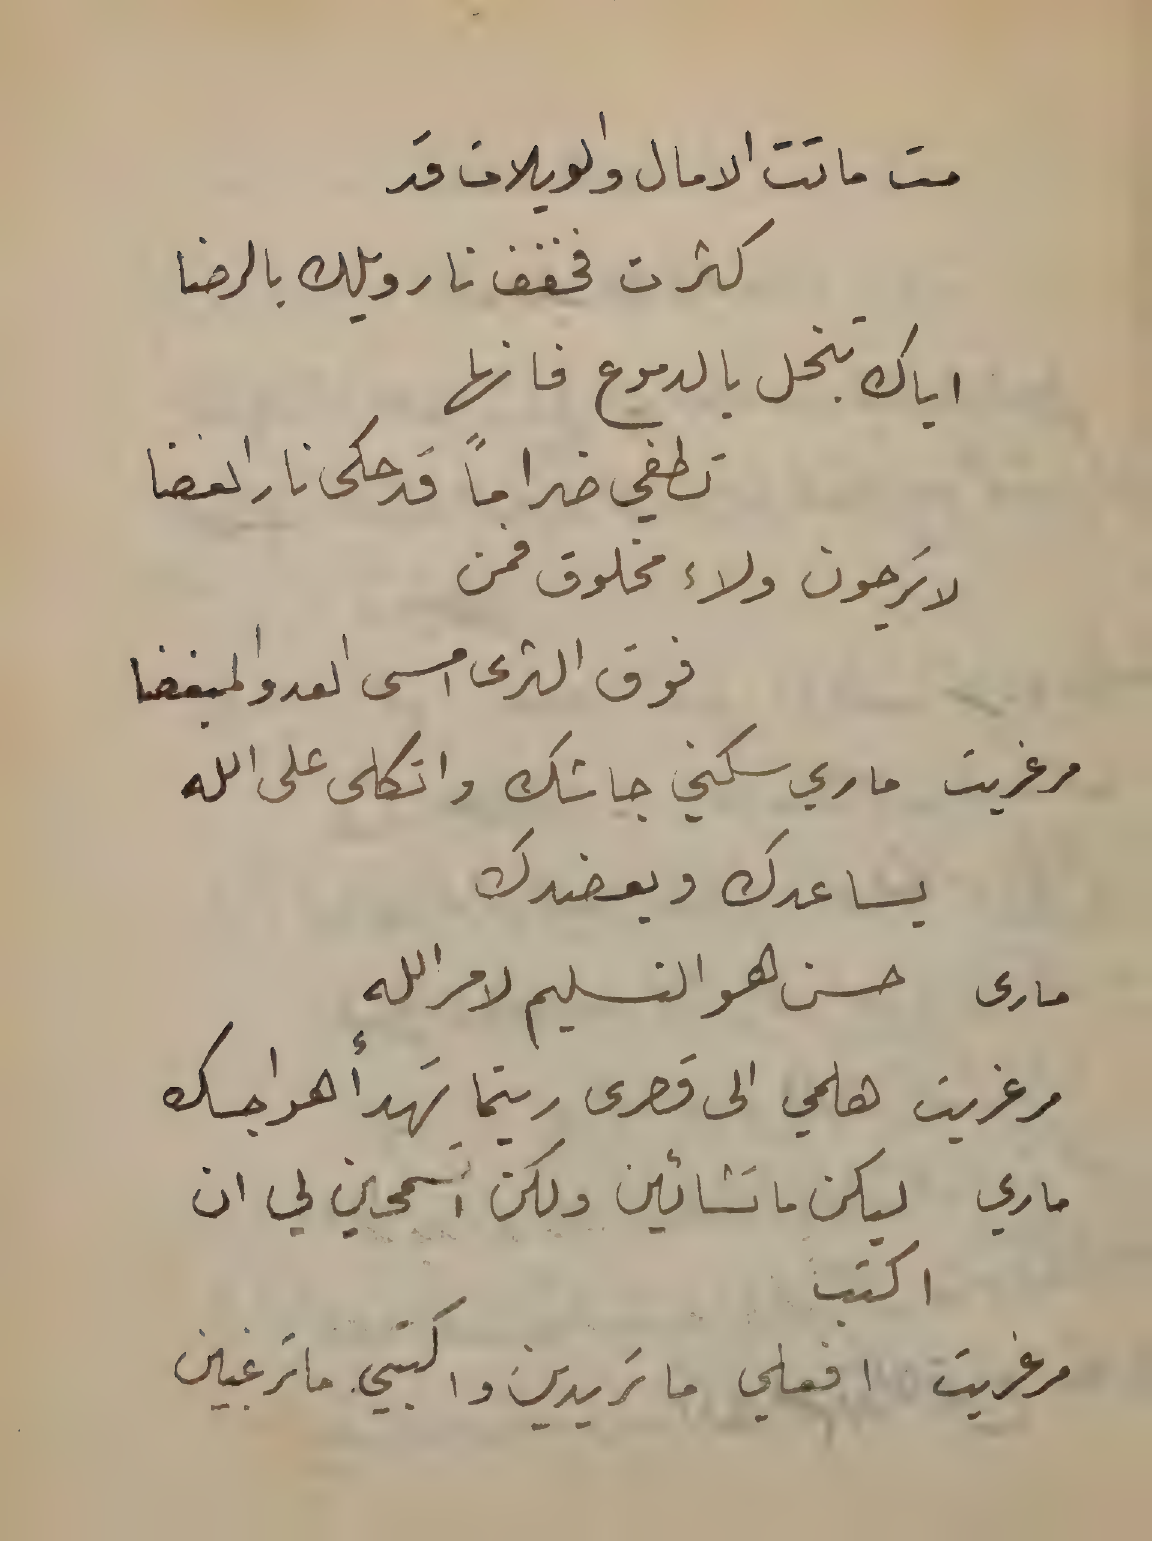 مت ماتت الامال والويلات قد
كثرت فخفف نار ويلك بالرضا
اياك تبخل بالدموع فانها
تطفي ضراماً قد حكى نار الغضا
لا ترجون ولاء مخلوق فمن
فوق الثرى امسى العدو المبغضا
مرغريت ماري سكني جاشك واتكلى على الله
يساعدك ويعضدك
مارى حسن هو التسليم لامر الله
مرغريت هلمي الى قصرى ريثما تهدأ هواجسك
ماري ليكن ما تشائين ولكن اتسمحين لي ان
اكتب
مرغريت افعلي ما تريدين واكتبي ما ترغبين